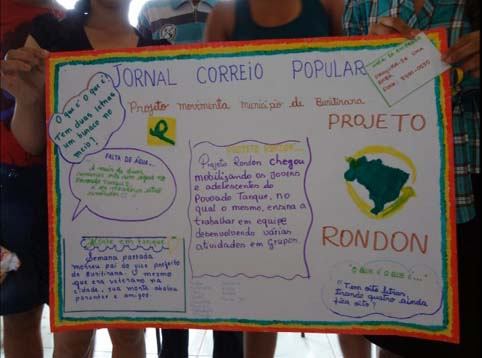 JORNAL CORREIO POPULAR
Projeto movimenta município de Buritirana
O que é? O que é?
Tem duas letras
um buraco no
meio?
FALTA DE ÁGUA...
A mais de duas
semanas
Povoado Tanque
PROJETO RONDON...
Projeto Rondon chegou
mobilizando os jovens
e adolescentes do
Povoado Tanque, no
qual o mesmo, ensina a
trabalhar em equipe
desenvolvendo várias
atividades em grupos.
PROJETO
RONDON
Morte em tanque
Semana passada
morreu pai do vice prefeito
de Buritirana. O mesmo
que era veterano na
cidade, sua morte abalou
parentes e amigos
O QUE É O QUE É..."
"Tem oito letras,
tirando quatro ainda
fica oito?